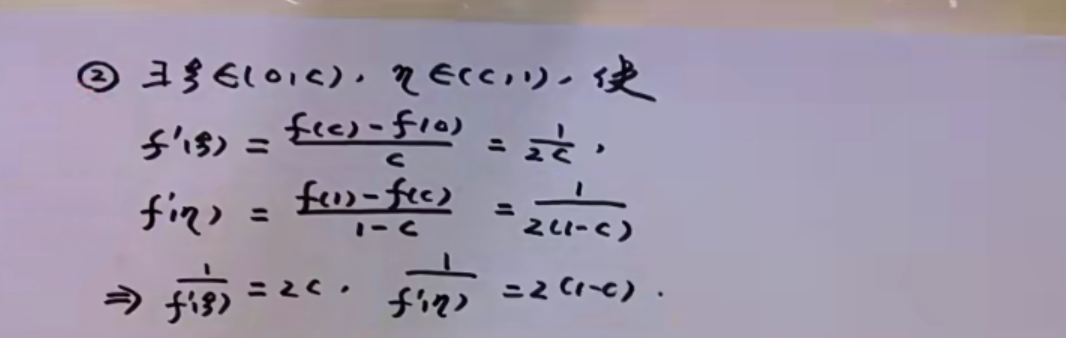 ② ∃ξ∈(0,c). η∈(c,1). 使
f'(ξ) = \frac{f(c)-f(0)}{c} = \frac{1}{2c},
f'(η) = \frac{f(1)-f(c)}{1-c} = \frac{1}{2(1-c)}
⇒ \frac{1}{f'(ξ)} = 2c. \frac{1}{f'(η)} = 2(1-c).